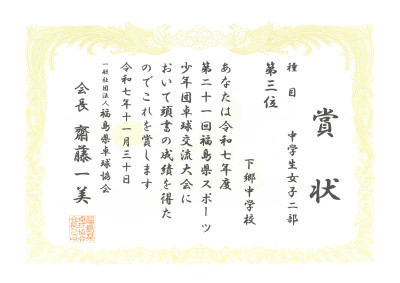 賞状
種目 中学生女子二部
第三位
下郷中学校
あなたは令和七年度
第二十一回福島県スポーツ
少年団卓球交流大会に
おいて頭書の成績を得た
のでこれを賞します
令和七年十一月三十日
一般社団法人福島県卓球協会
会長 齋藤一美